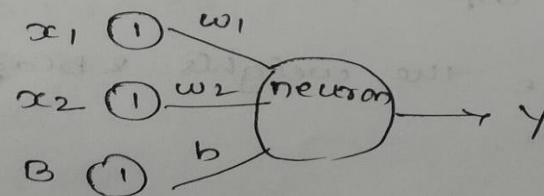 x1 1 w1
x2 1 w2 neuron Y
B 1 b